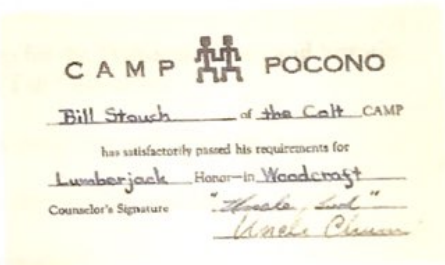 CAMP POCONO
Bill Stouch of the Colt CAMP
has satisfactorily passed his requirements for
Lumberjack Honor—in Woodcraft
Counselor's Signature "Uncle
Uncle